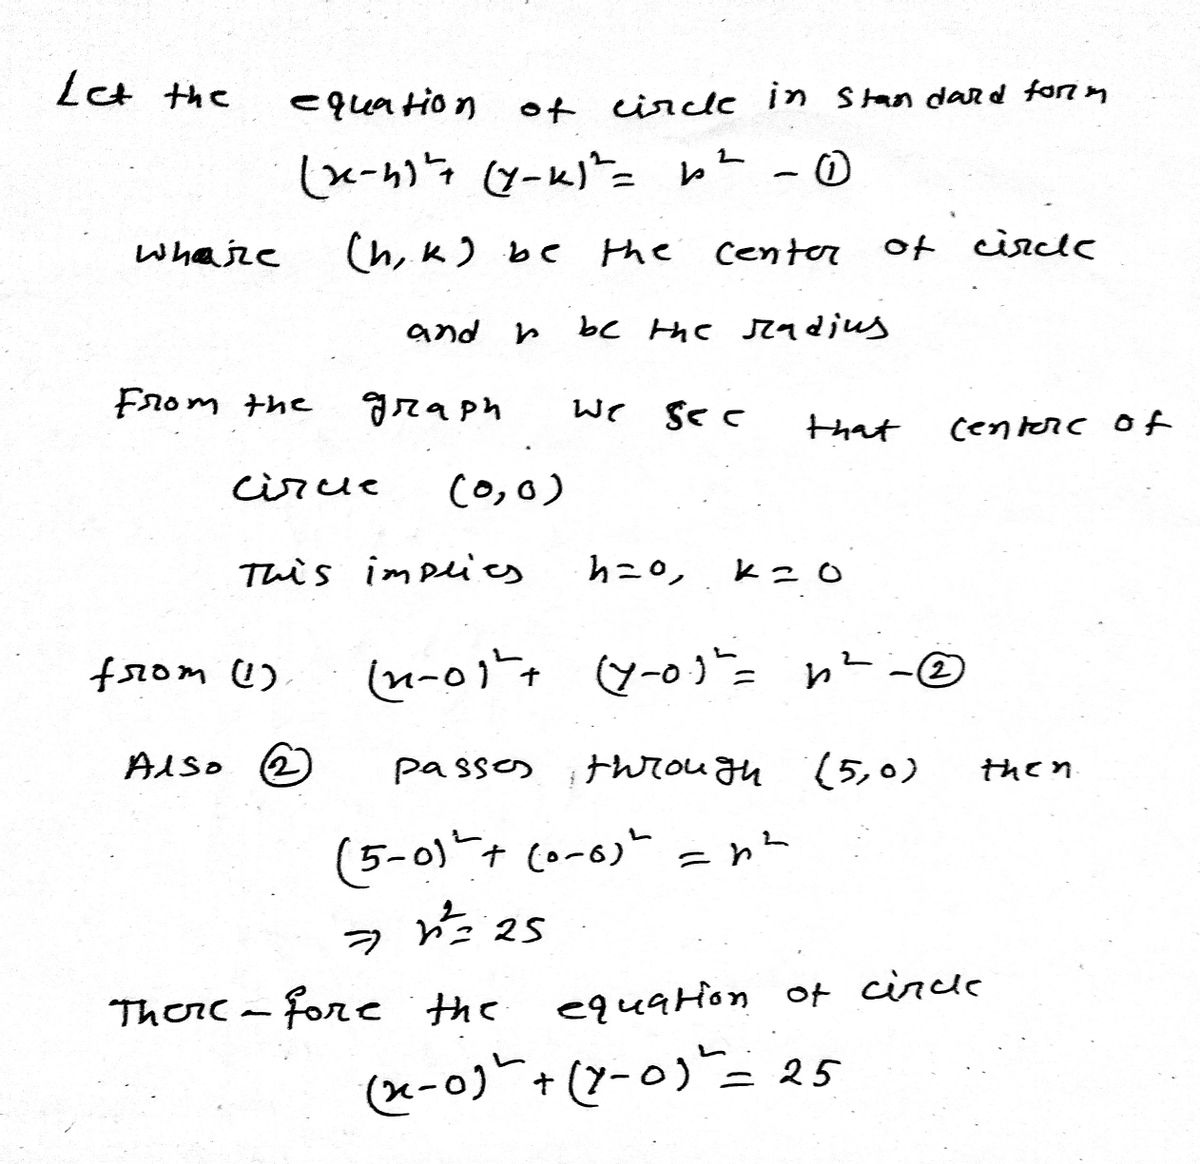 Let the equation of circle in standard form
(x-h)² + (y-k)² = r² - ①
whare (h, k) be the center of circle
and r be the radius
From the graph we see that centere of
circle (0,0)
This implies h=0, k=0
from (1) (x-0)² + (y-0)² = r² - ②
Also ② passes through (5,0) then
(5-0)² + (0-0)² = r²
⇒ r² = 25
There-fore the equation of circle
(x-0)² + (y-0)² = 25